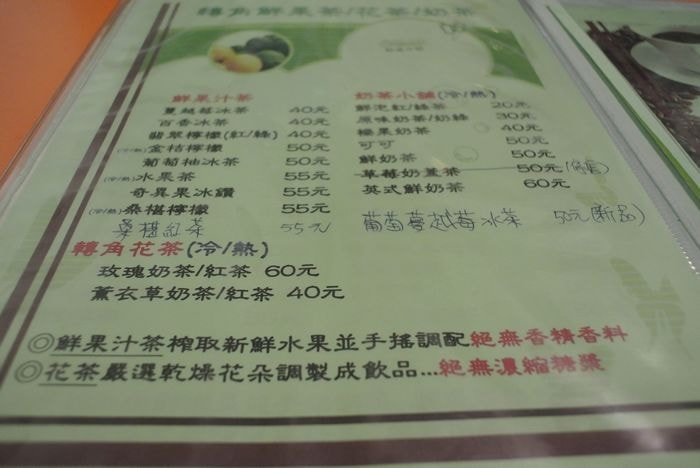 轉角鮮果茶/花茶/奶茶
鮮果汁茶
蔓越莓冰茶 40元
百香冰茶 40元
翡翠檸檬(紅/綠) 40元
(冷/熱)金桔檸檬 50元
葡萄柚冰茶 50元
(冷/熱)水果茶 55元
奇異果冰鑽 55元
(冷/熱)桑椹檸檬 55元
桑椹紅茶 55元
轉角花茶(冷/熱)
玫瑰奶茶/紅茶 60元
薰衣草奶茶/紅茶 40元
奶茶小舖(冷/熱)
鮮泡紅/綠茶 20元
原味奶茶/奶綠 30元
榛果奶茶 40元
可可 50元
鮮奶茶 50元
草莓奶蓋茶 50元
英式鮮奶茶 60元
葡萄蔓越莓冰茶 50元(新品)
◎鮮果汁茶榨取新鮮水果並手搖調配絕無香精香料
◎花茶嚴選乾燥花朵調製成飲品...絕無濃縮糖漿